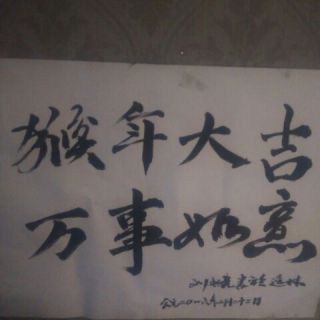 猴年大吉
万事如意
公元二〇一六年二月十二日